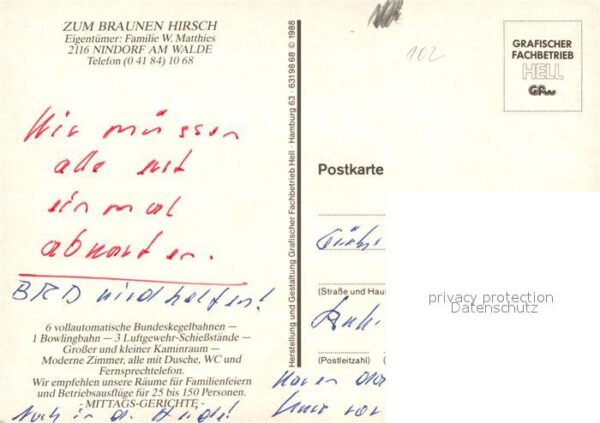 ZUM BRAUNEN HIRSCH
Eigentümer: Familie W. Matthies
2116 NINDORF AM WALDE
Telefon (0 41 84) 10 68
Wir müssen
alle erst
einmal
abwarten.
BRD wird helfen!
6 vollautomatische Bundeskegelbahnen —
1 Bowlingbahn — 3 Luftgewehr-Schießstände —
Großer und kleiner Kaminraum —
Moderne Zimmer, alle mit Dusche, WC und
Fernsprechtelefon.
Wir empfehlen unsere Räume für Familienfeiern
und Betriebsausflüge für 25 bis 150 Personen.
- MITTAGS-GERICHTE -
Noch in d. Heide!
Herstellung und Gestaltung Grafischer Fachbetrieb Hell · Hamburg 63 · 6319868 © 1988
102
GRAFISCHER
FACHBETRIEB
HELL
Postkarte
(Straße und Haus
(Postleitzahl)
privacy protection
Datenschutz